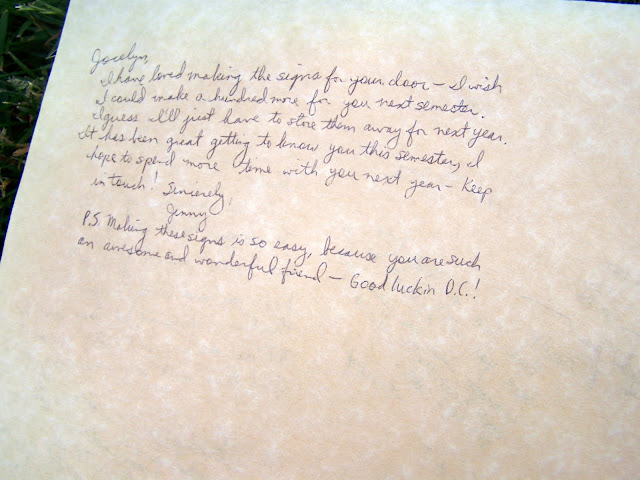 Jocelyn,
I have loved making the signs for your door - I wish
I could make a hundred more for you next semester.
I guess I'll just have to store them away for next year.
It has been great getting to know you this semester, I
hope to spend more time with you next year - Keep
in touch! Sincerely,
Jenny
P.S. Making these signs is so easy, because you are such
an awesome and wonderful friend - Good luck in D.C.!